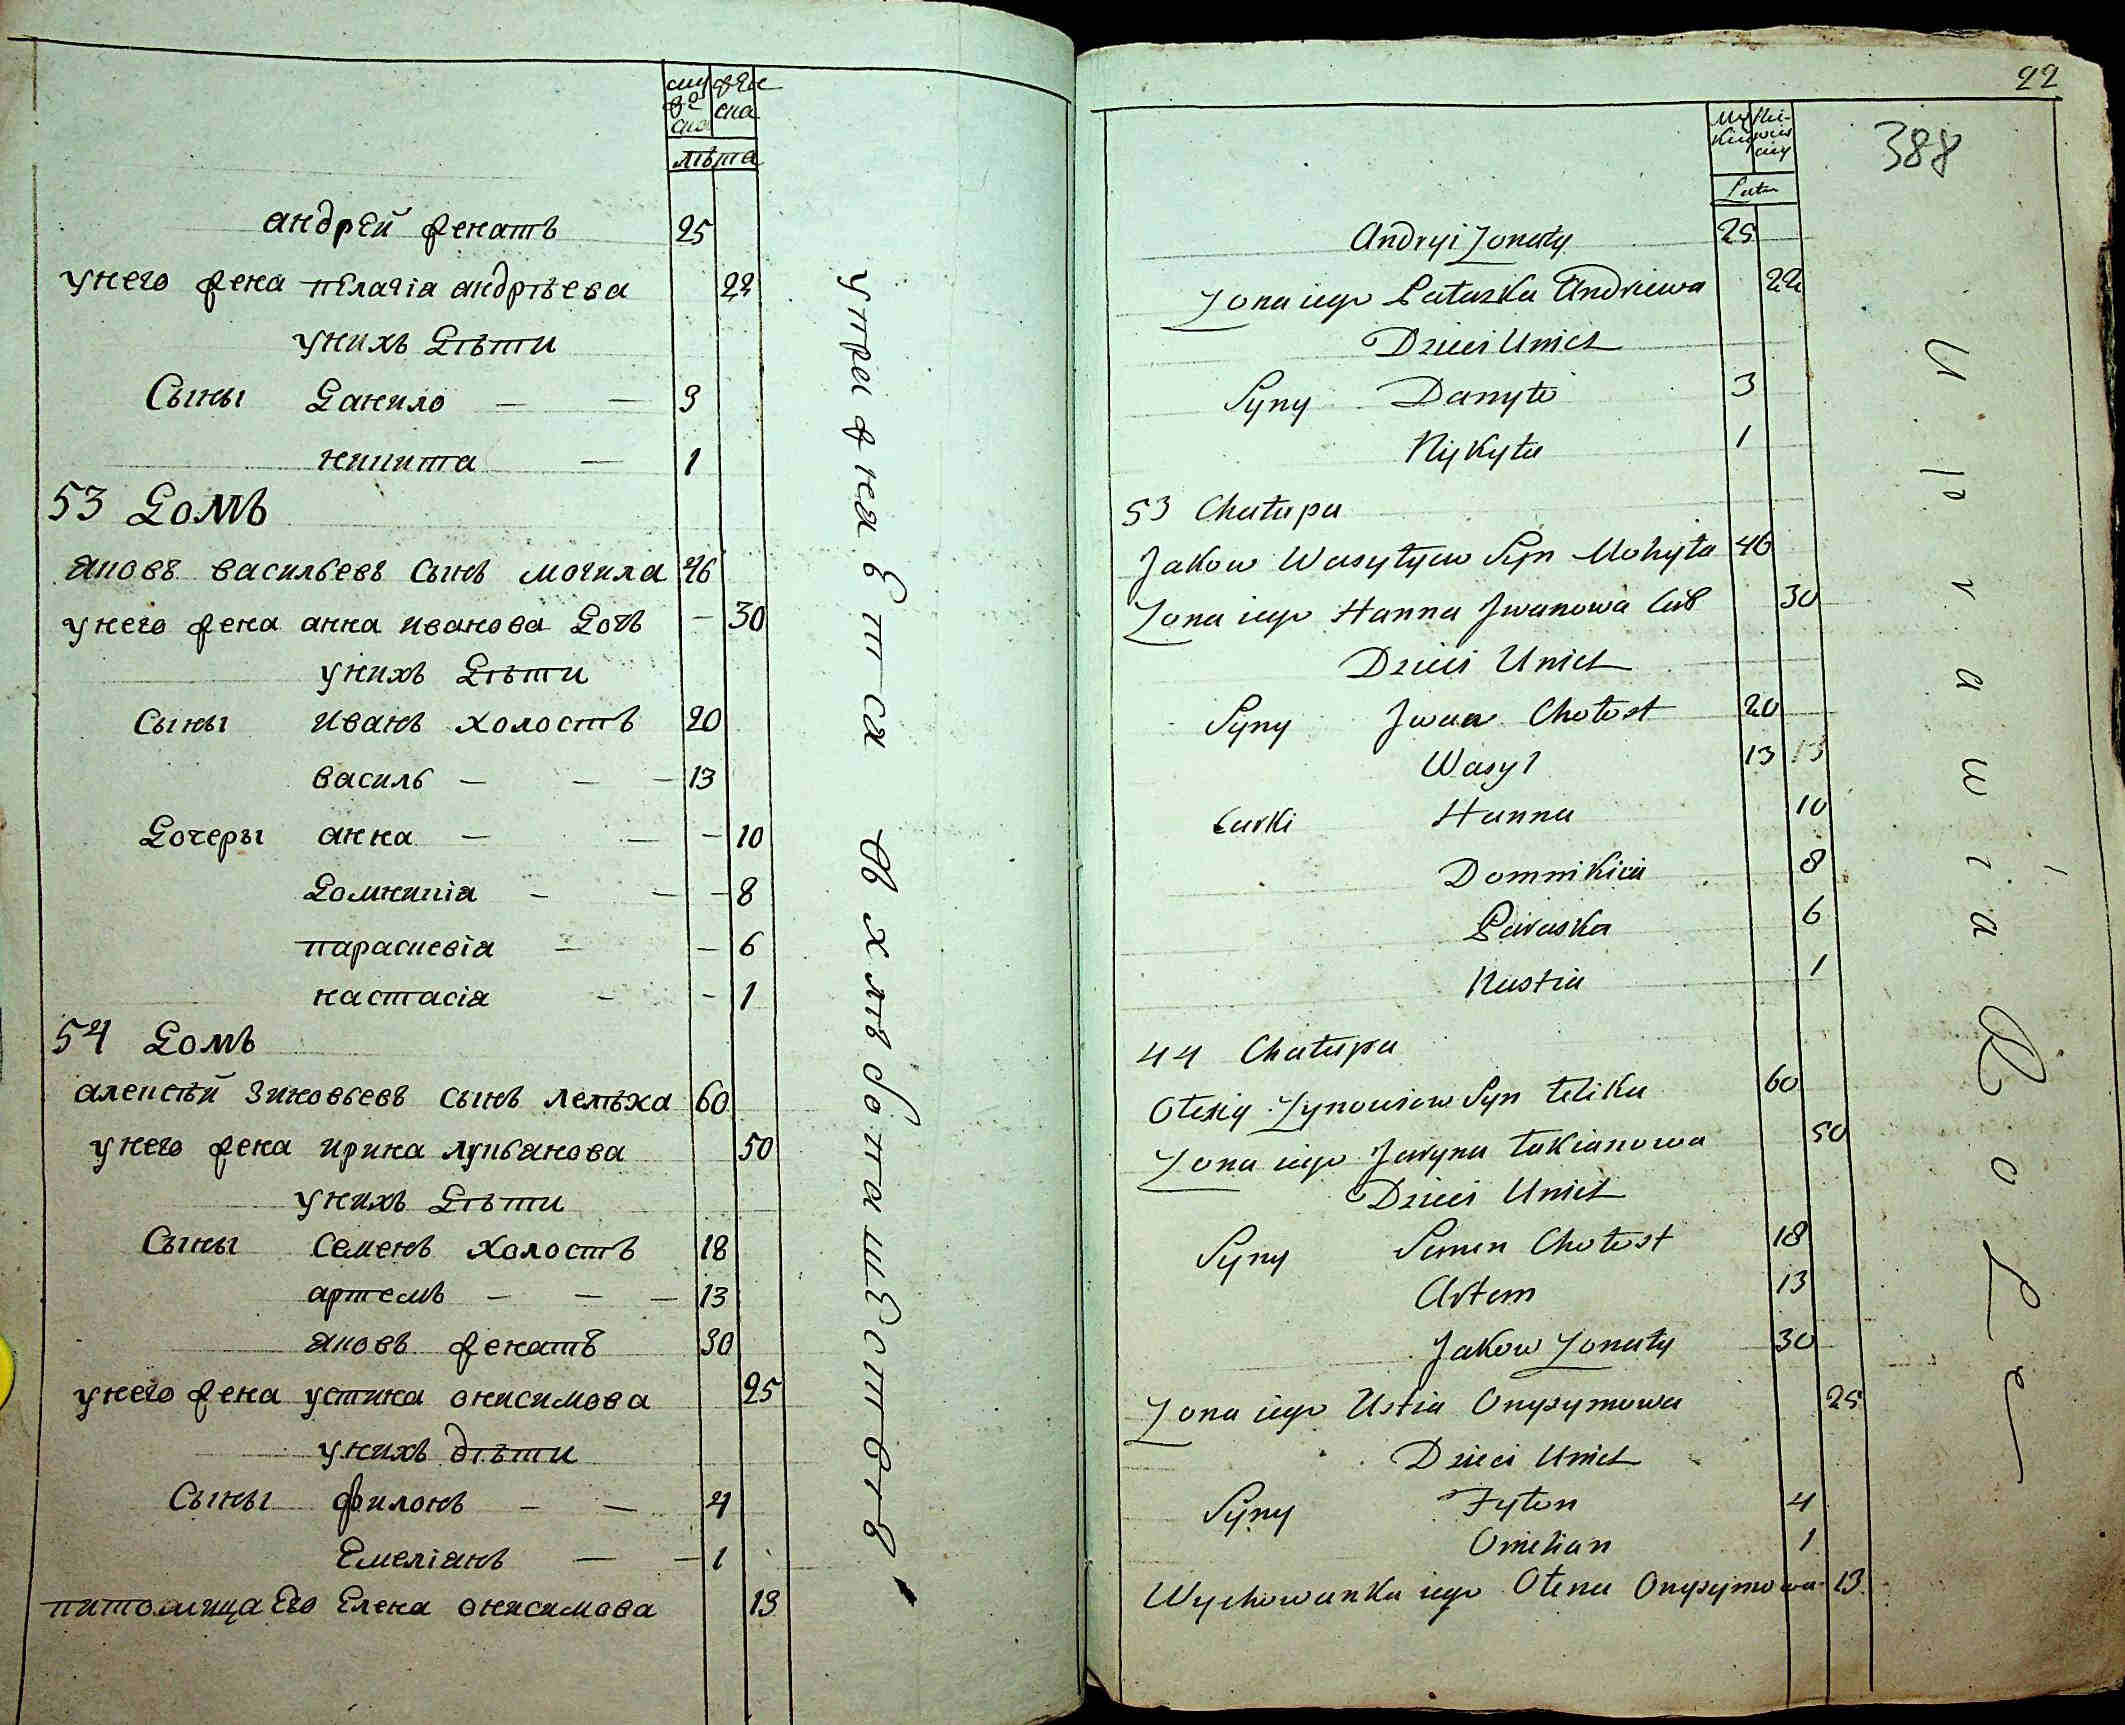 муж
ска
жен
ска
лѣта
андрей женатъ 25
унего жена пелагіа андрѣева 22
унихъ дѣти
Сыны данило — — 3
никита — 1
53 домъ
яковъ васильевъ сынъ могила 46
унего жена анна иванова дочь — 30
унихъ дѣти
сыны иванъ холостъ 20
василь — — — 13
дочеры анна — — — 10
домникіа — — — 8
параскевіа — — 6
настасіа — — 1
54 домъ
алексѣй зиновьевъ сынъ лелѣка 60
унего жена ирина лукьанова 50
унихъ дѣти
Сыны семенъ холостъ 18
артемъ — — — 13
яковъ женатъ 30
унего жена устина онисимова 25
унихъ дѣти
Сыны филонъ — — 4
емеліанъ — — 1
питомица его елена онисимова 13
упражнаетса въ хлѣбопашествѣ
22
388
Lata
Andryi Żonaty 25
Żona iego Pałaszka Andriiewa 22
Dzieci Unich
Syny Danyło 3
Nykyta 1
53 Chałupa
Jakow Wasylyiew Syn Mohyła 46
Żona iego Hanna Jwanowa Cór 30
Dzieci Unich
Syny Jwan Chołost 20
Wasyl 13 13
Curki Hanna 10
Domnikiia 8
Paraska 6
Nastia 1
44 Chałupa
Ołexiy Zynowiew Syn Lelika 60
Żona iego Jaryna Łukianowa 50
Dzieci Unich
Syny Semen Chołost 18
Artem 13
Jakow Żonaty 30
Żona iego Ustia Onysymowa 25
Dzieci Unich
Syny Fyłon 4
Omelian 1
Wychowanka iego Ołena Onysymowa 13
Uprawia Rolę